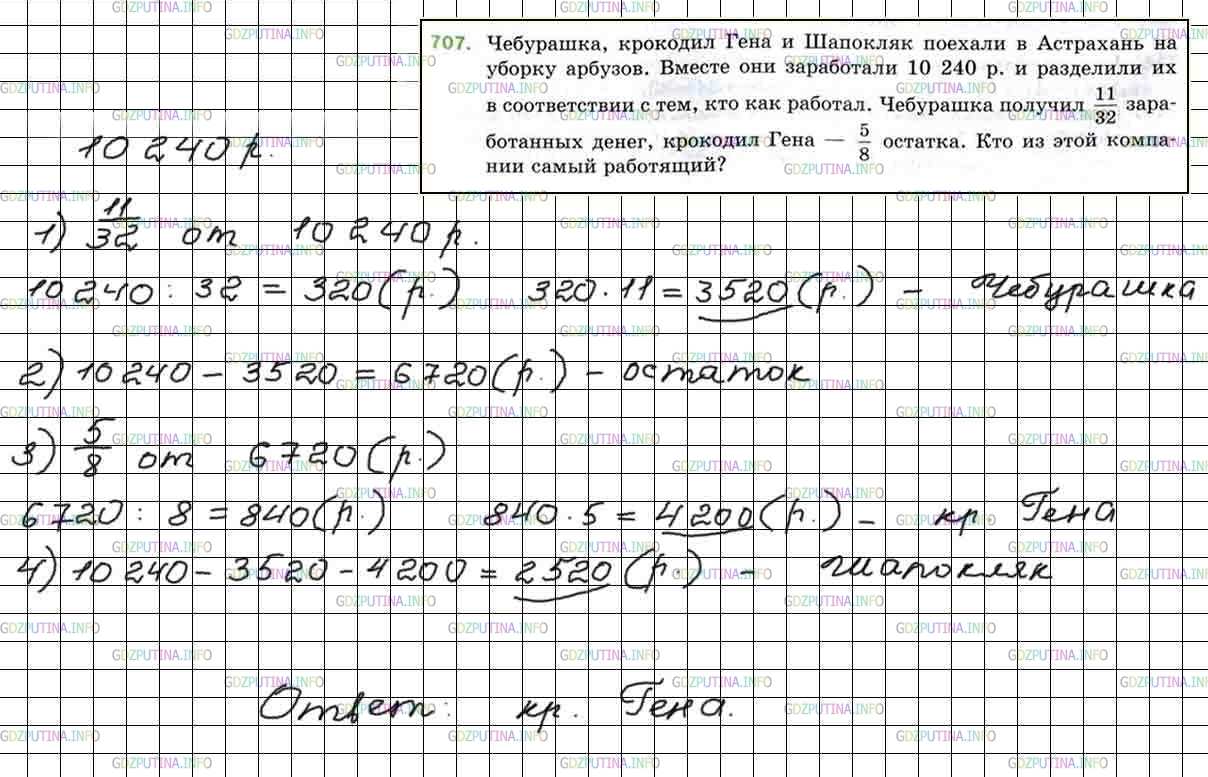 707. Чебурашка, крокодил Гена и Шапокляк поехали в Астрахань на
уборку арбузов. Вместе они заработали 10 240 р. и разделили их
в соответствии с тем, кто как работал. Чебурашка получил 11/32 зара-
ботанных денег, крокодил Гена — 5/8 остатка. Кто из этой компа-
нии самый работящий?
10 240 р.
1) 11/32 от 10 240 р.
10 240 : 32 = 320 (р.) 320 · 11 = 3520 (р.) - Чебурашка
2) 10 240 - 3520 = 6720 (р.) - остаток
3) 5/8 от 6720 (р.)
6720 : 8 = 840 (р.) 840 · 5 = 4200 (р.) - кр. Гена
4) 10 240 - 3520 - 4200 = 2520 (р.) - шапокляк
Ответ: кр. Гена.
GDZPUTINA.INFO